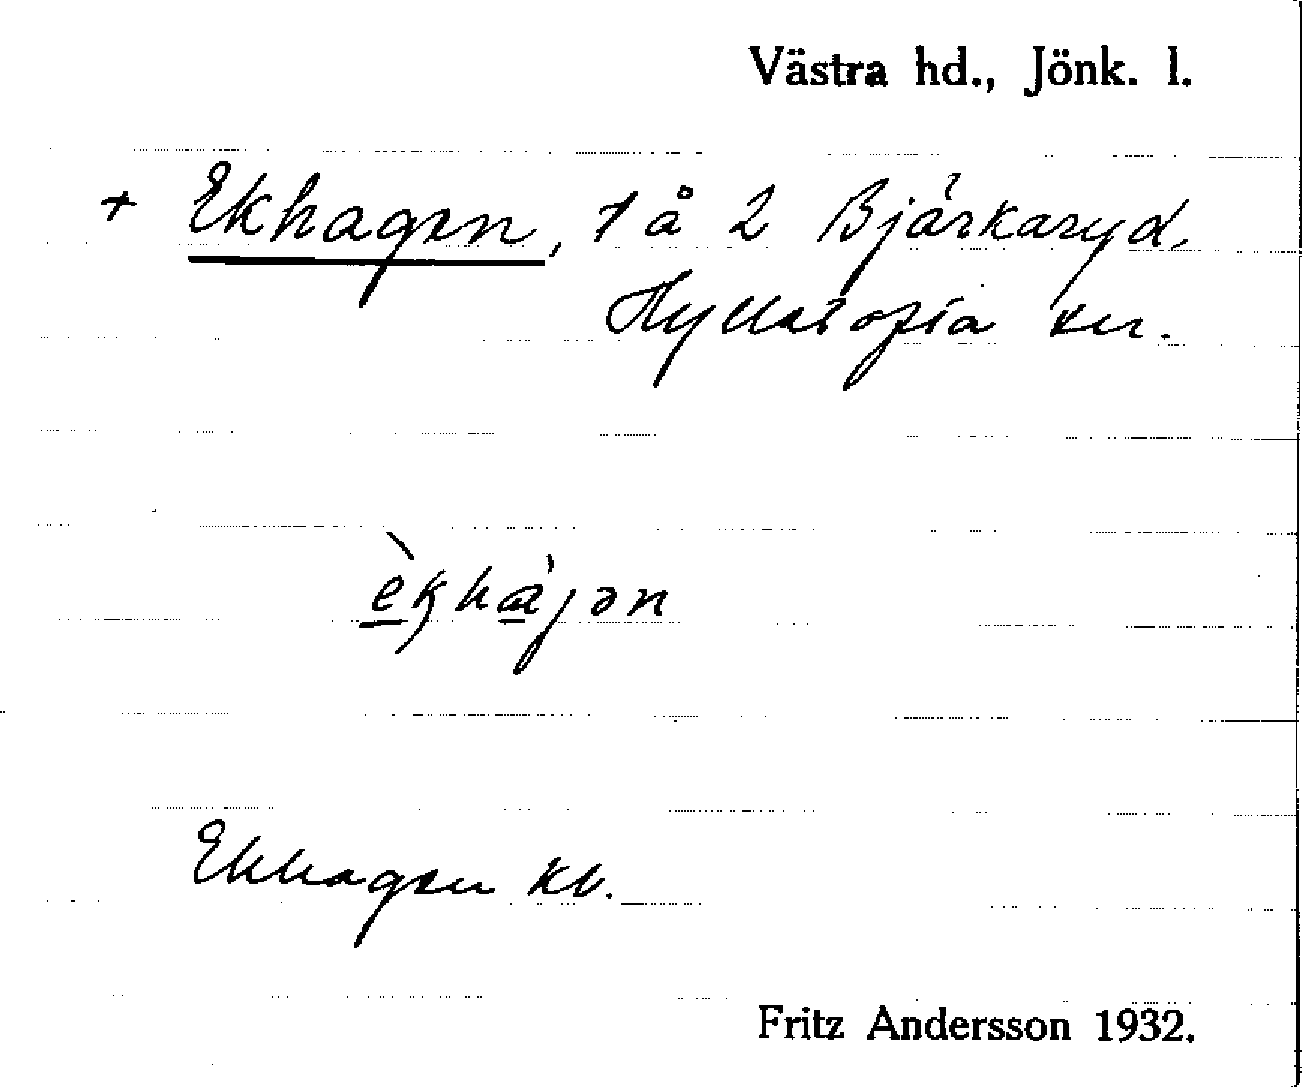 Västra hd., Jönk. l.
+ Ekhagen, 1 å 2 Bjärkaryd,
Hyltatofta sn.
èkhàjən
Ekhagen kb.
Fritz Andersson 1932.